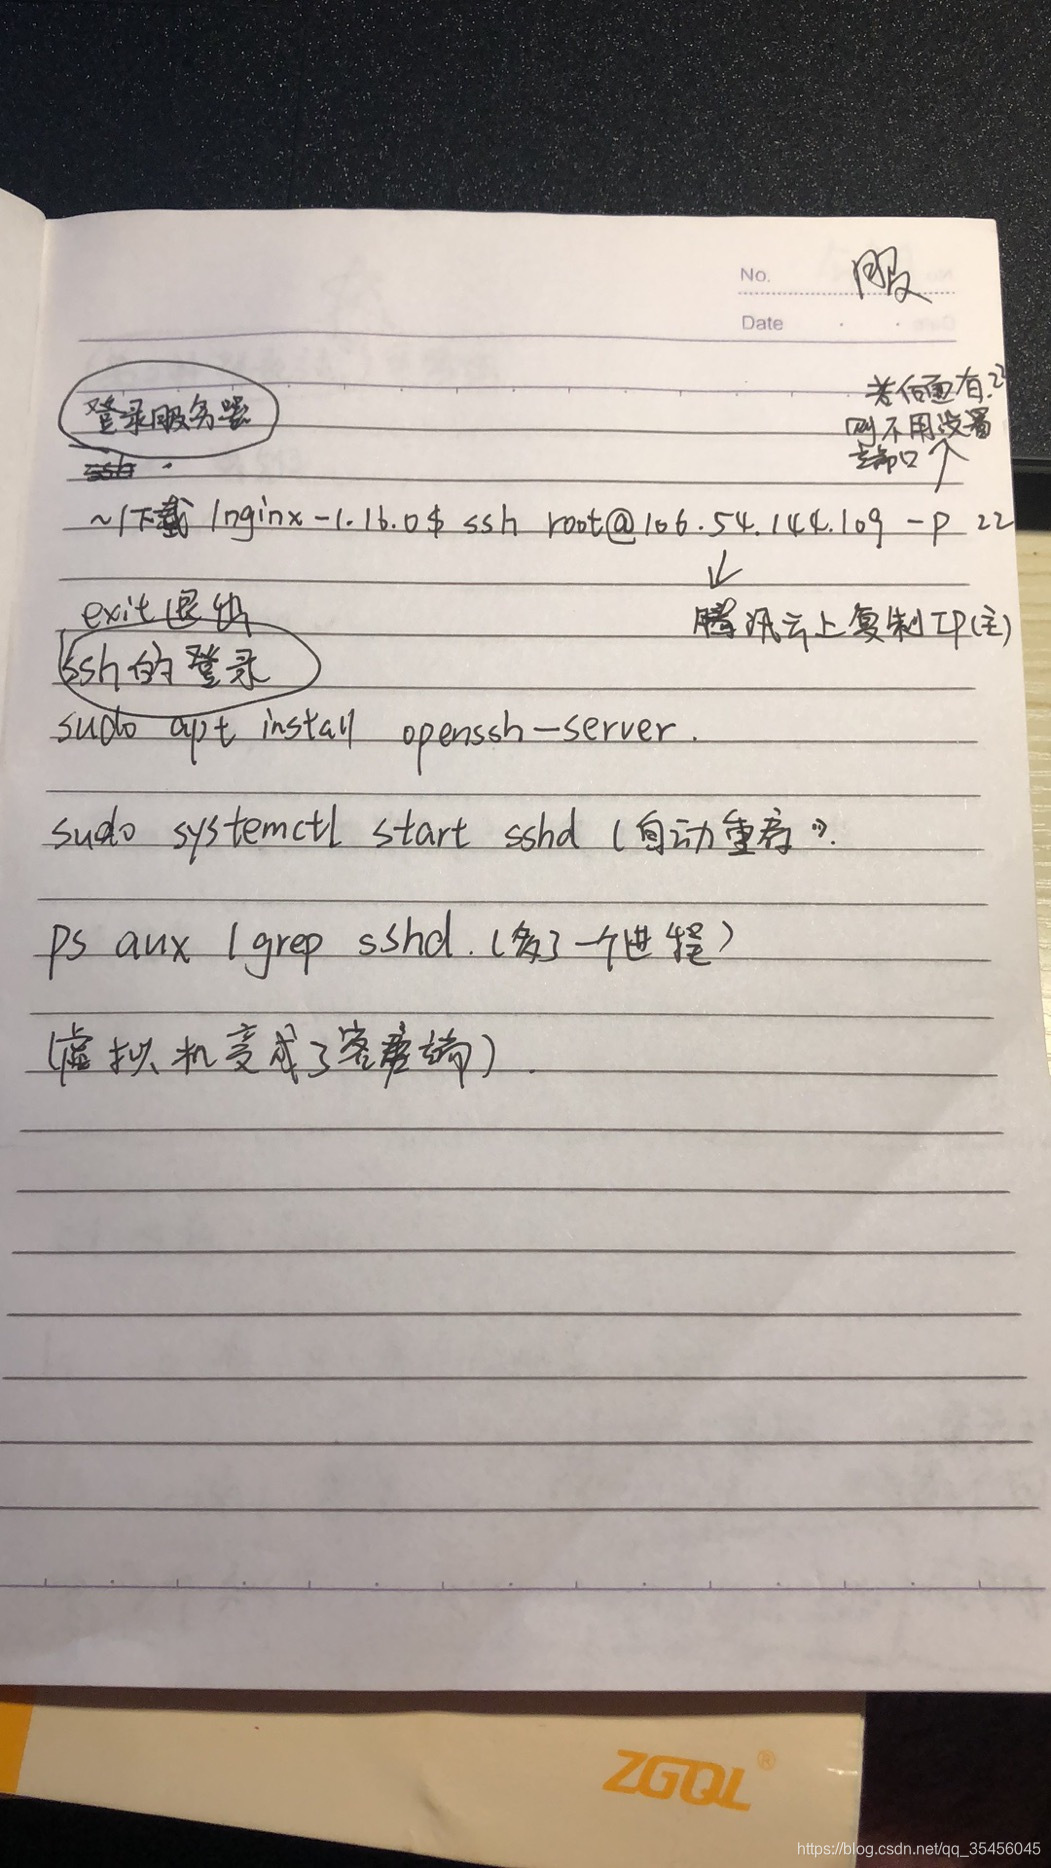 No.
服
Date
登录服务器
若后面有22
则不用设置
端口
ssh
~/下载/nginx-1.16.0$ ssh root@106.54.144.109 -p 22
exit退出
腾讯云上复制IP(主)
ssh的登录
sudo apt install openssh-server.
sudo systemctl start sshd (自动重
ps aux | grep sshd. (多了一个进程)
(虚拟机变成了客户端).
ZGQL®
https://blog.csdn.net/qq_35456045